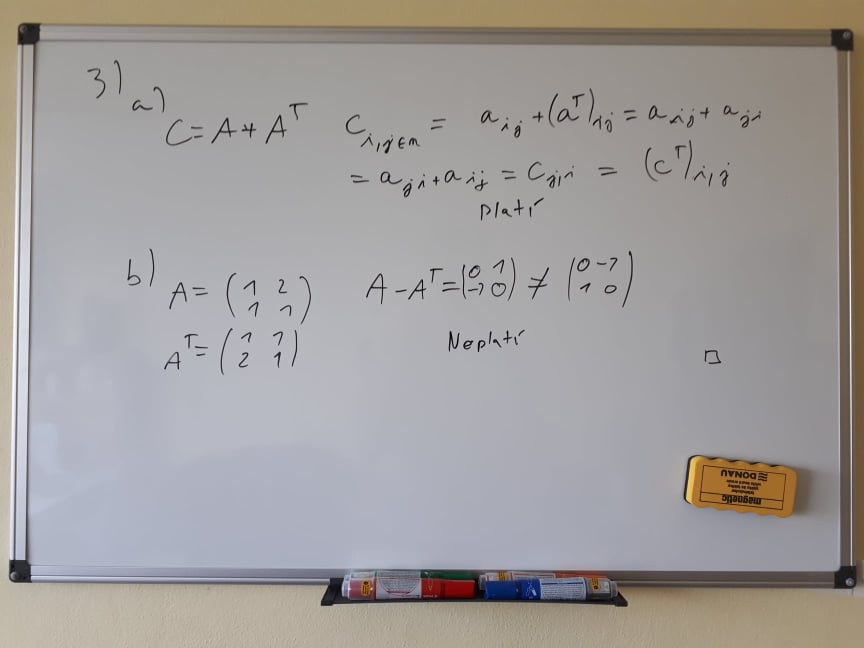 3) a)
C = A + Aᵀ   c_{i,j∈n} = a_{ij} + (aᵀ)_{ij} = a_{ij} + a_{ji}
= a_{ji} + a_{ij} = c_{j,i} = (cᵀ)_{i,j}
platí
b)
A = (1 2; 1 1)   A - Aᵀ = (0 1; -1 0) ≠ (0 -1; 1 0)
Aᵀ = (1 1; 2 1)
Neplatí
□
magnetic
DONAU